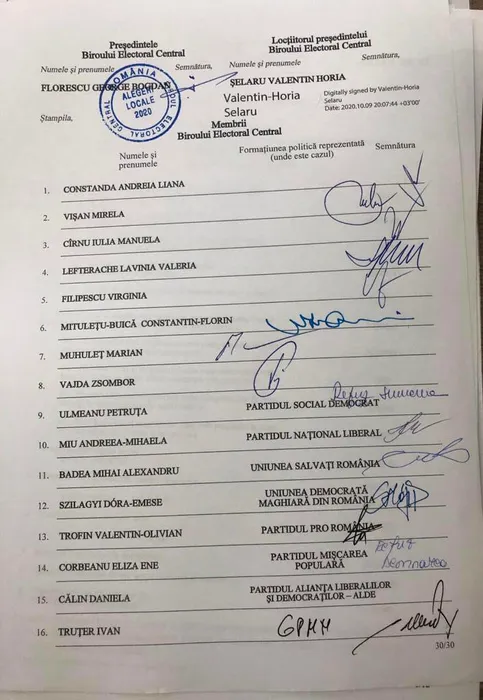 Președintele
Biroului Electoral Central
Locțiitorul președintelui
Biroului Electoral Central
Numele și prenumele Semnătura,
Numele și prenumele Semnătura,
FLORESCU GEORGE BOGDAN
ȘELARU VALENTIN HORIA
ROMÂNIA
BIROUL ELECTORAL CENTRAL
ALEGERI
LOCALE
2020
Valentin-Horia
Selaru
Digitally signed by Valentin-Horia
Selaru
Date: 2020.10.09 20:07:44 +03'00'
Ștampila,
Membrii
Biroului Electoral Central
Numele și
prenumele
Formațiunea politică reprezentată
(unde este cazul)
Semnătura
1. CONSTANDA ANDREIA LIANA
2. VIȘAN MIRELA
3. CÎRNU IULIA MANUELA
4. LEFTERACHE LAVINIA VALERIA
5. FILIPESCU VIRGINIA
6. MITULEȚU-BUICĂ CONSTANTIN-FLORIN
7. MUHULEȚ MARIAN
8. VAJDA ZSOMBOR
9. ULMEANU PETRUȚA PARTIDUL SOCIAL DEMOCRAT
10. MIU ANDREEA-MIHAELA PARTIDUL NAȚIONAL LIBERAL
11. BADEA MIHAI ALEXANDRU UNIUNEA SALVAȚI ROMÂNIA
12. SZILAGYI DÓRA-EMESE UNIUNEA DEMOCRATĂ
MAGHIARĂ DIN ROMÂNIA
13. TROFIN VALENTIN-OLIVIAN PARTIDUL PRO ROMÂNIA
14. CORBEANU ELIZA ENE PARTIDUL MIȘCAREA
POPULARĂ
15. CĂLIN DANIELA PARTIDUL ALIANȚA LIBERALILOR
ȘI DEMOCRAȚILOR – ALDE
16. TRUȚER IVAN GPMN
30/30